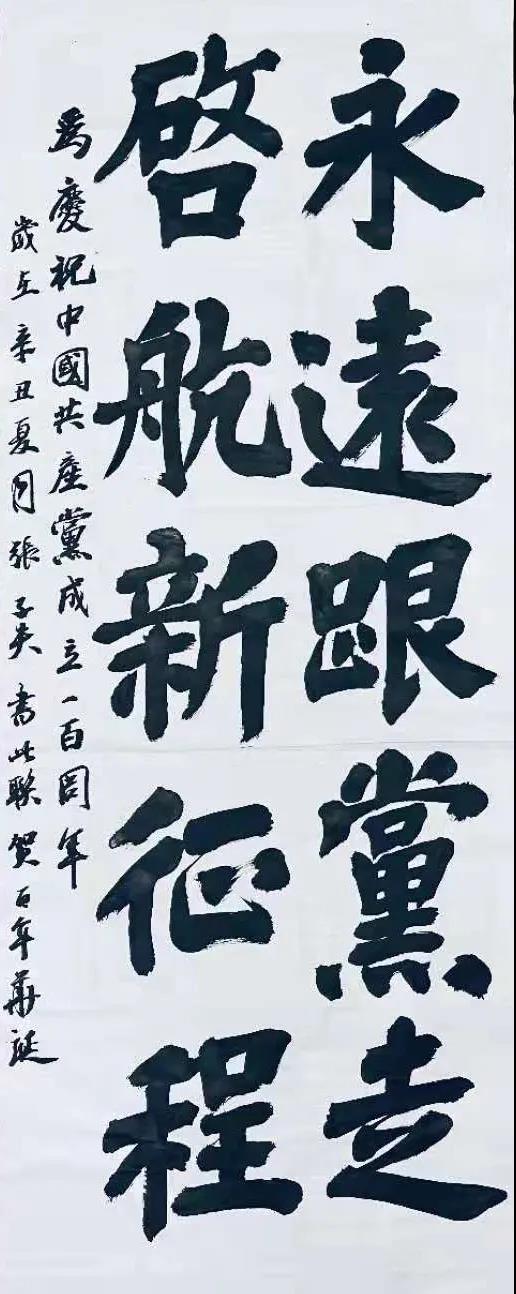 永遠跟黨走
啓航新征程
爲慶祝中國共産黨成立一百周年
歲在辛丑夏月張子夫書此联賀百年華誕